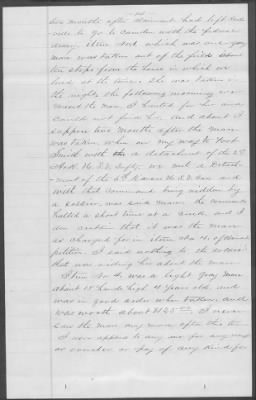 two months after claimant had left and
to go to Camden with the federal
army. Item No 4, which was one gray
mare was taken out of the field about
ten steps from the house in which we
lived at the time. She was taken in
the night, the following morning we
missed the mare, I hunted for her and
could not find her, and about I
suppose two months after the mare
was taken, when on my way to Fort
Smith with a detachment of the 2d
Ark. U.S. Infty, we met a Detach-
ment of the 6th Kansas U.S. Cav. and
with that Command being ridden by
a soldier, was said mare. The command
halted a short time at a creek, and I
am certain that it was the mare
as charged for in item No 4 of said
petition. I said nothing to the soldier
that was riding her about the mare.
Item No 4. was a light gray mare
about 15 hands high 4 years old, and
was in good order when taken, and
was worth about $125.00. I never
saw the mare any more after this time
I never applied to any one for any receipt
or voucher or pay of any kind for